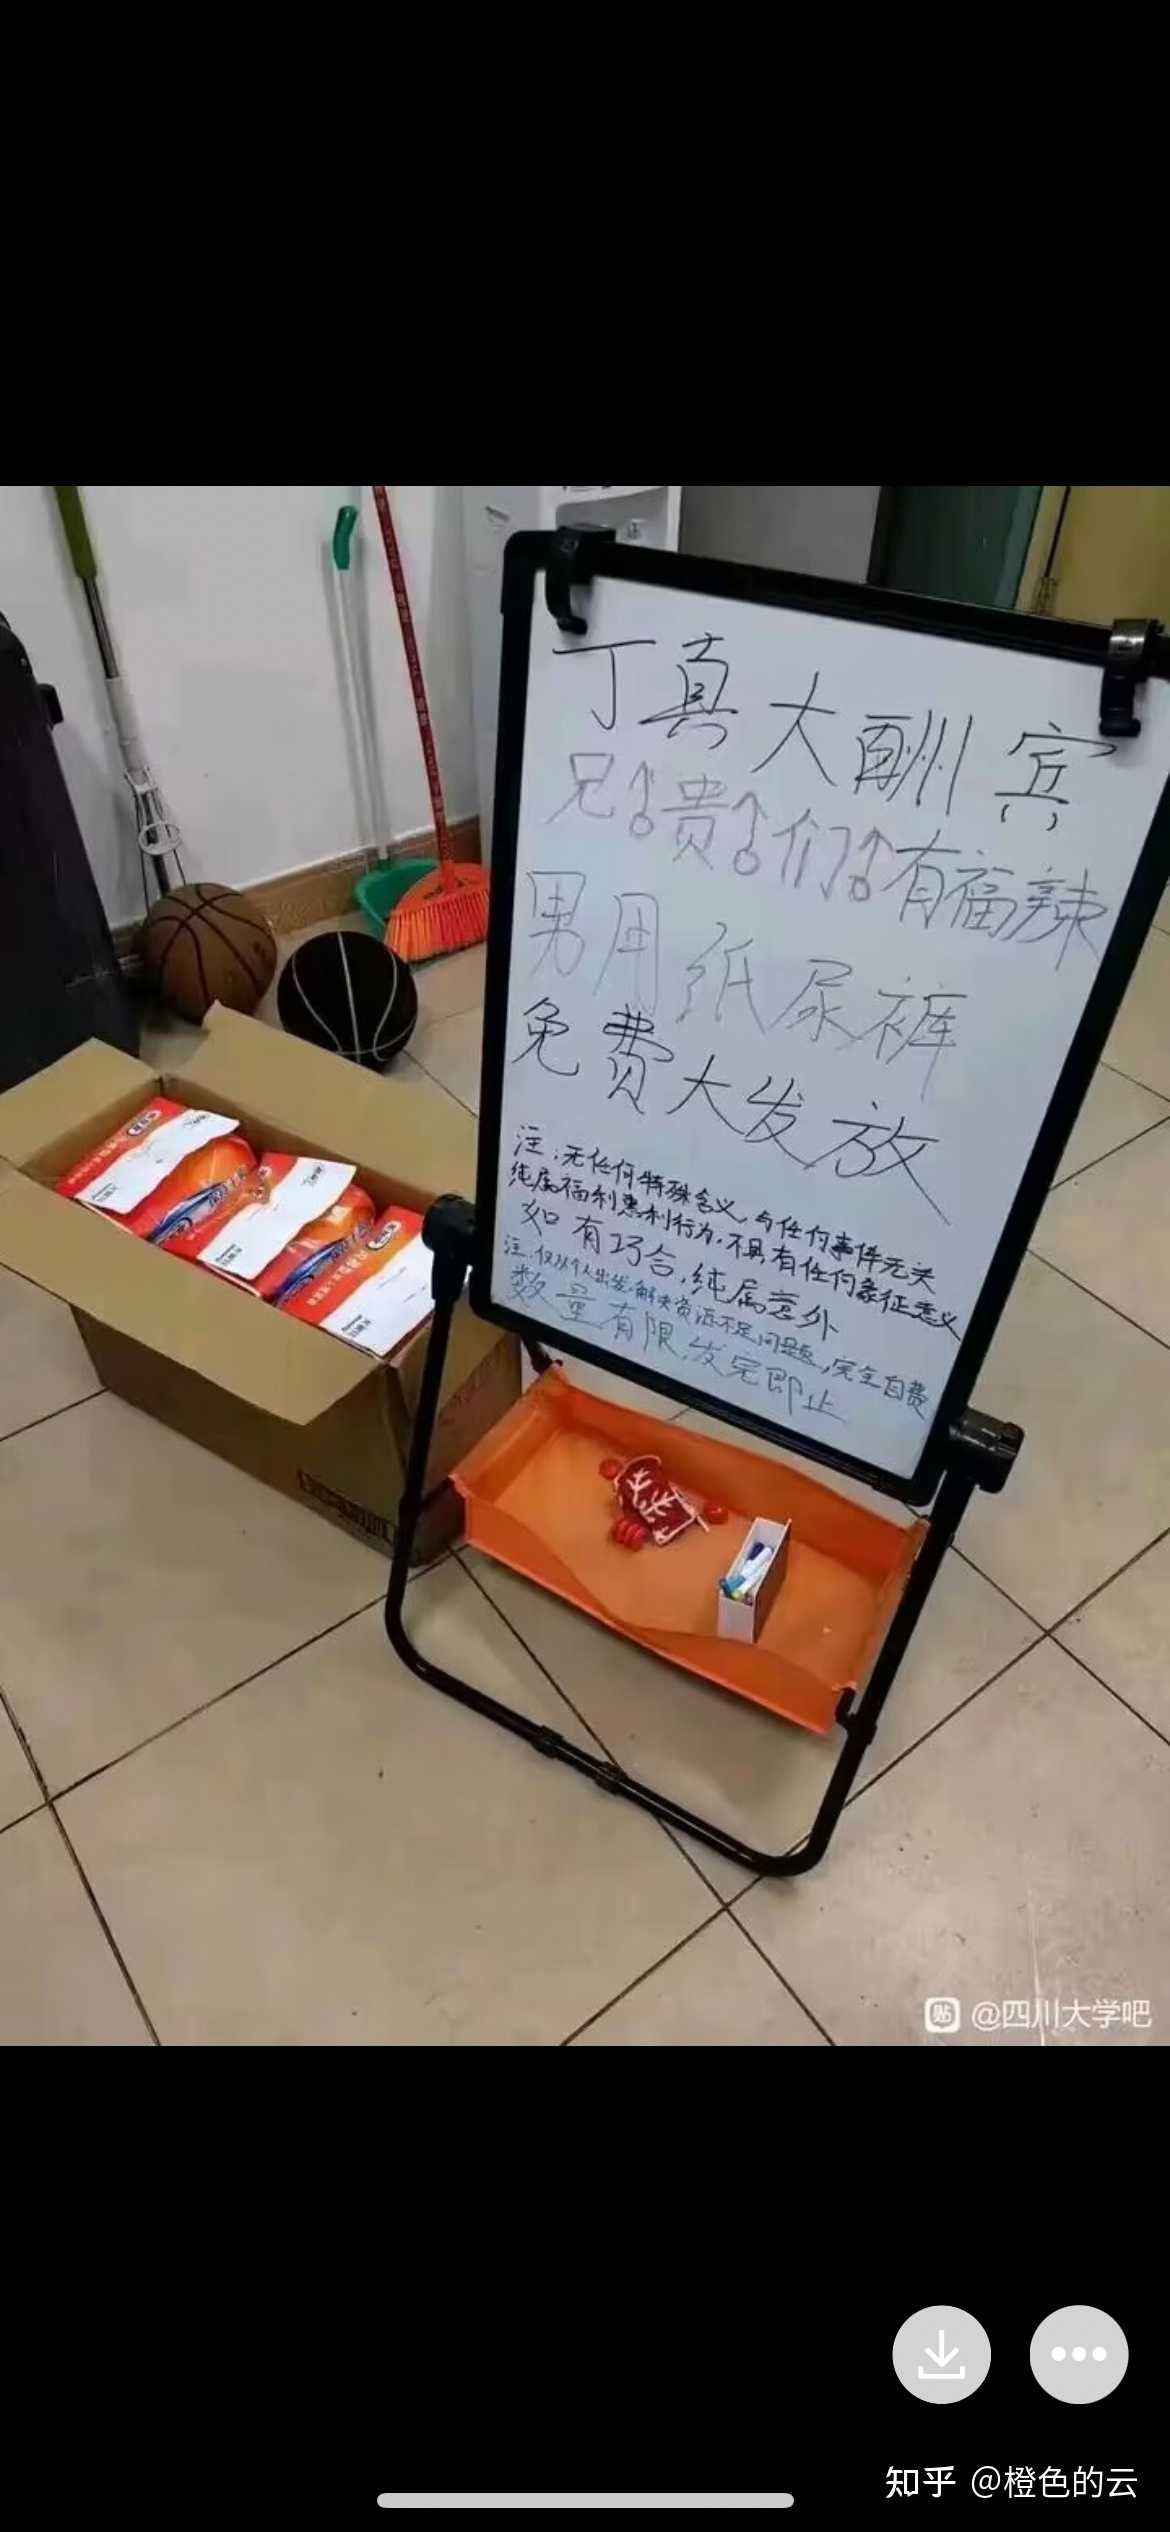 丁真大酬宾
兄♂贵♂们♂有福辣
男用纸尿裤
免费大发放
注:无任何特殊含义,与任何事件无关
纯属福利惠利行为,不具有任何象征意义
如有巧合,纯属意外
注:仅从个人出发,解决资源不足问题,完全自费
数量有限,发完即止
贴 @四川大学吧
知乎 @橙色的云